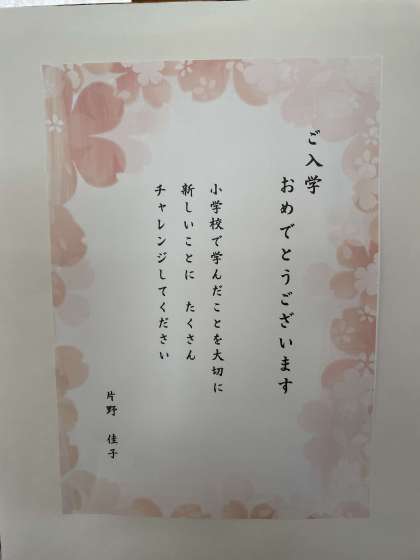 ご入学
おめでとうございます
小学校で学んだことを大切に
新しいことに　たくさん
チャレンジしてください
片野　佳子